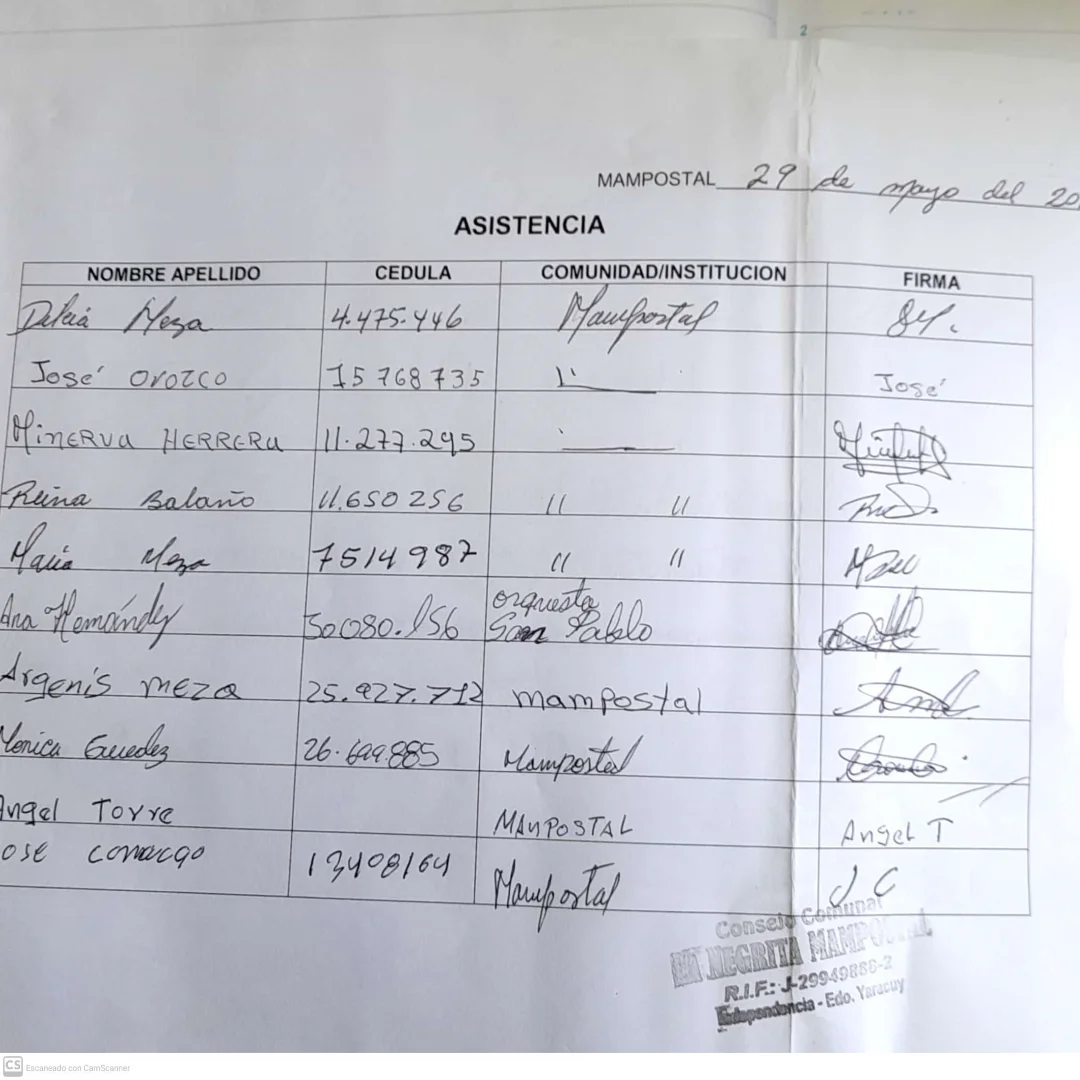 2
MAMPOSTAL 29 de mayo del 20
ASISTENCIA
NOMBRE APELLIDO CEDULA COMUNIDAD/INSTITUCION FIRMA
Meza 4.475.446 Mampostal
José Orozco 15 768 735 José
MINERVA HERRERA 11.277.295
Reina Balaño 11.650 256 " "
Maria Meza 7514987 " "
Ana Hernández 30080.156 orquesta
San Pablo
Argenis meza 25.927.712 mampostal
Monica Guedez 26.699.885 Mampostal
Angel Torre MAMPOSTAL Angel T
ose camacgo 13408164 Mampostal J C
Consejo Comunal
LA NEGRITA MAMPOSTAL
R.I.F.: J-29949886-2
Independencia - Edo. Yaracuy
CS Escaneado con CamScanner